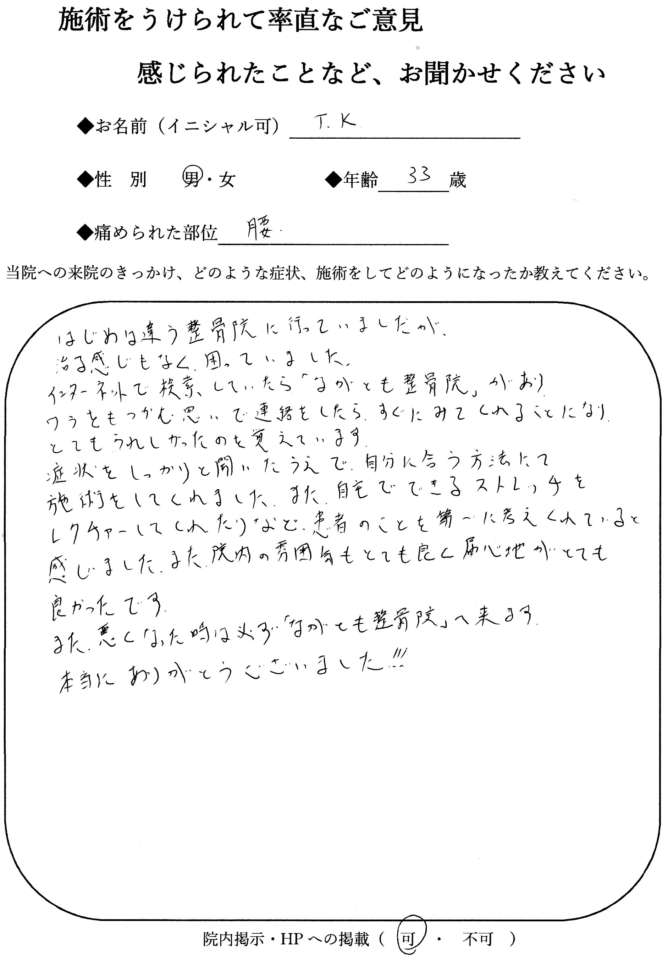 施術をうけられて率直なご意見
感じられたことなど、お聞かせください
◆お名前（イニシャル可） T.K
◆性 別 男・女 ◆年齢 33 歳
◆痛められた部位 腰.
当院への来院のきっかけ、どのような症状、施術をしてどのようになったか教えてください。
はじめは違う整骨院に行っていましたが、
治る感じもなく、困っていました。
インターネットで検索していたら「ながとも整骨院」があり
ワラをもつかむ思いで連絡をしたら、すぐにみてくれることになり、
とてもうれしかったのを覚えています。
症状をしっかりと聞いたうえで、自分に合う方法にて
施術をしてくれました、また、自宅でできるストレッチを
レクチャーしてくれたりなど、患者のことを第一に考えくれていると
感じました。また、院内の雰囲気もとても良く居心地がとても
良かったです。
また、悪くなった時は必ず「ながとも整骨院」へ来ます。
本当にありがとうございました!!!
院内掲示・HPへの掲載（ 可 ・ 不可 ）